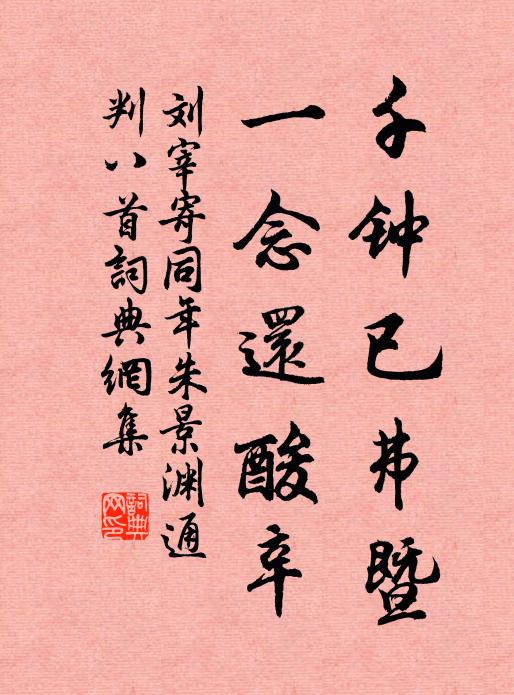 千钟已弗暨
一念還酸辛
刘宰寄同年朱景渊通
判八首詞典網集
詞典网印